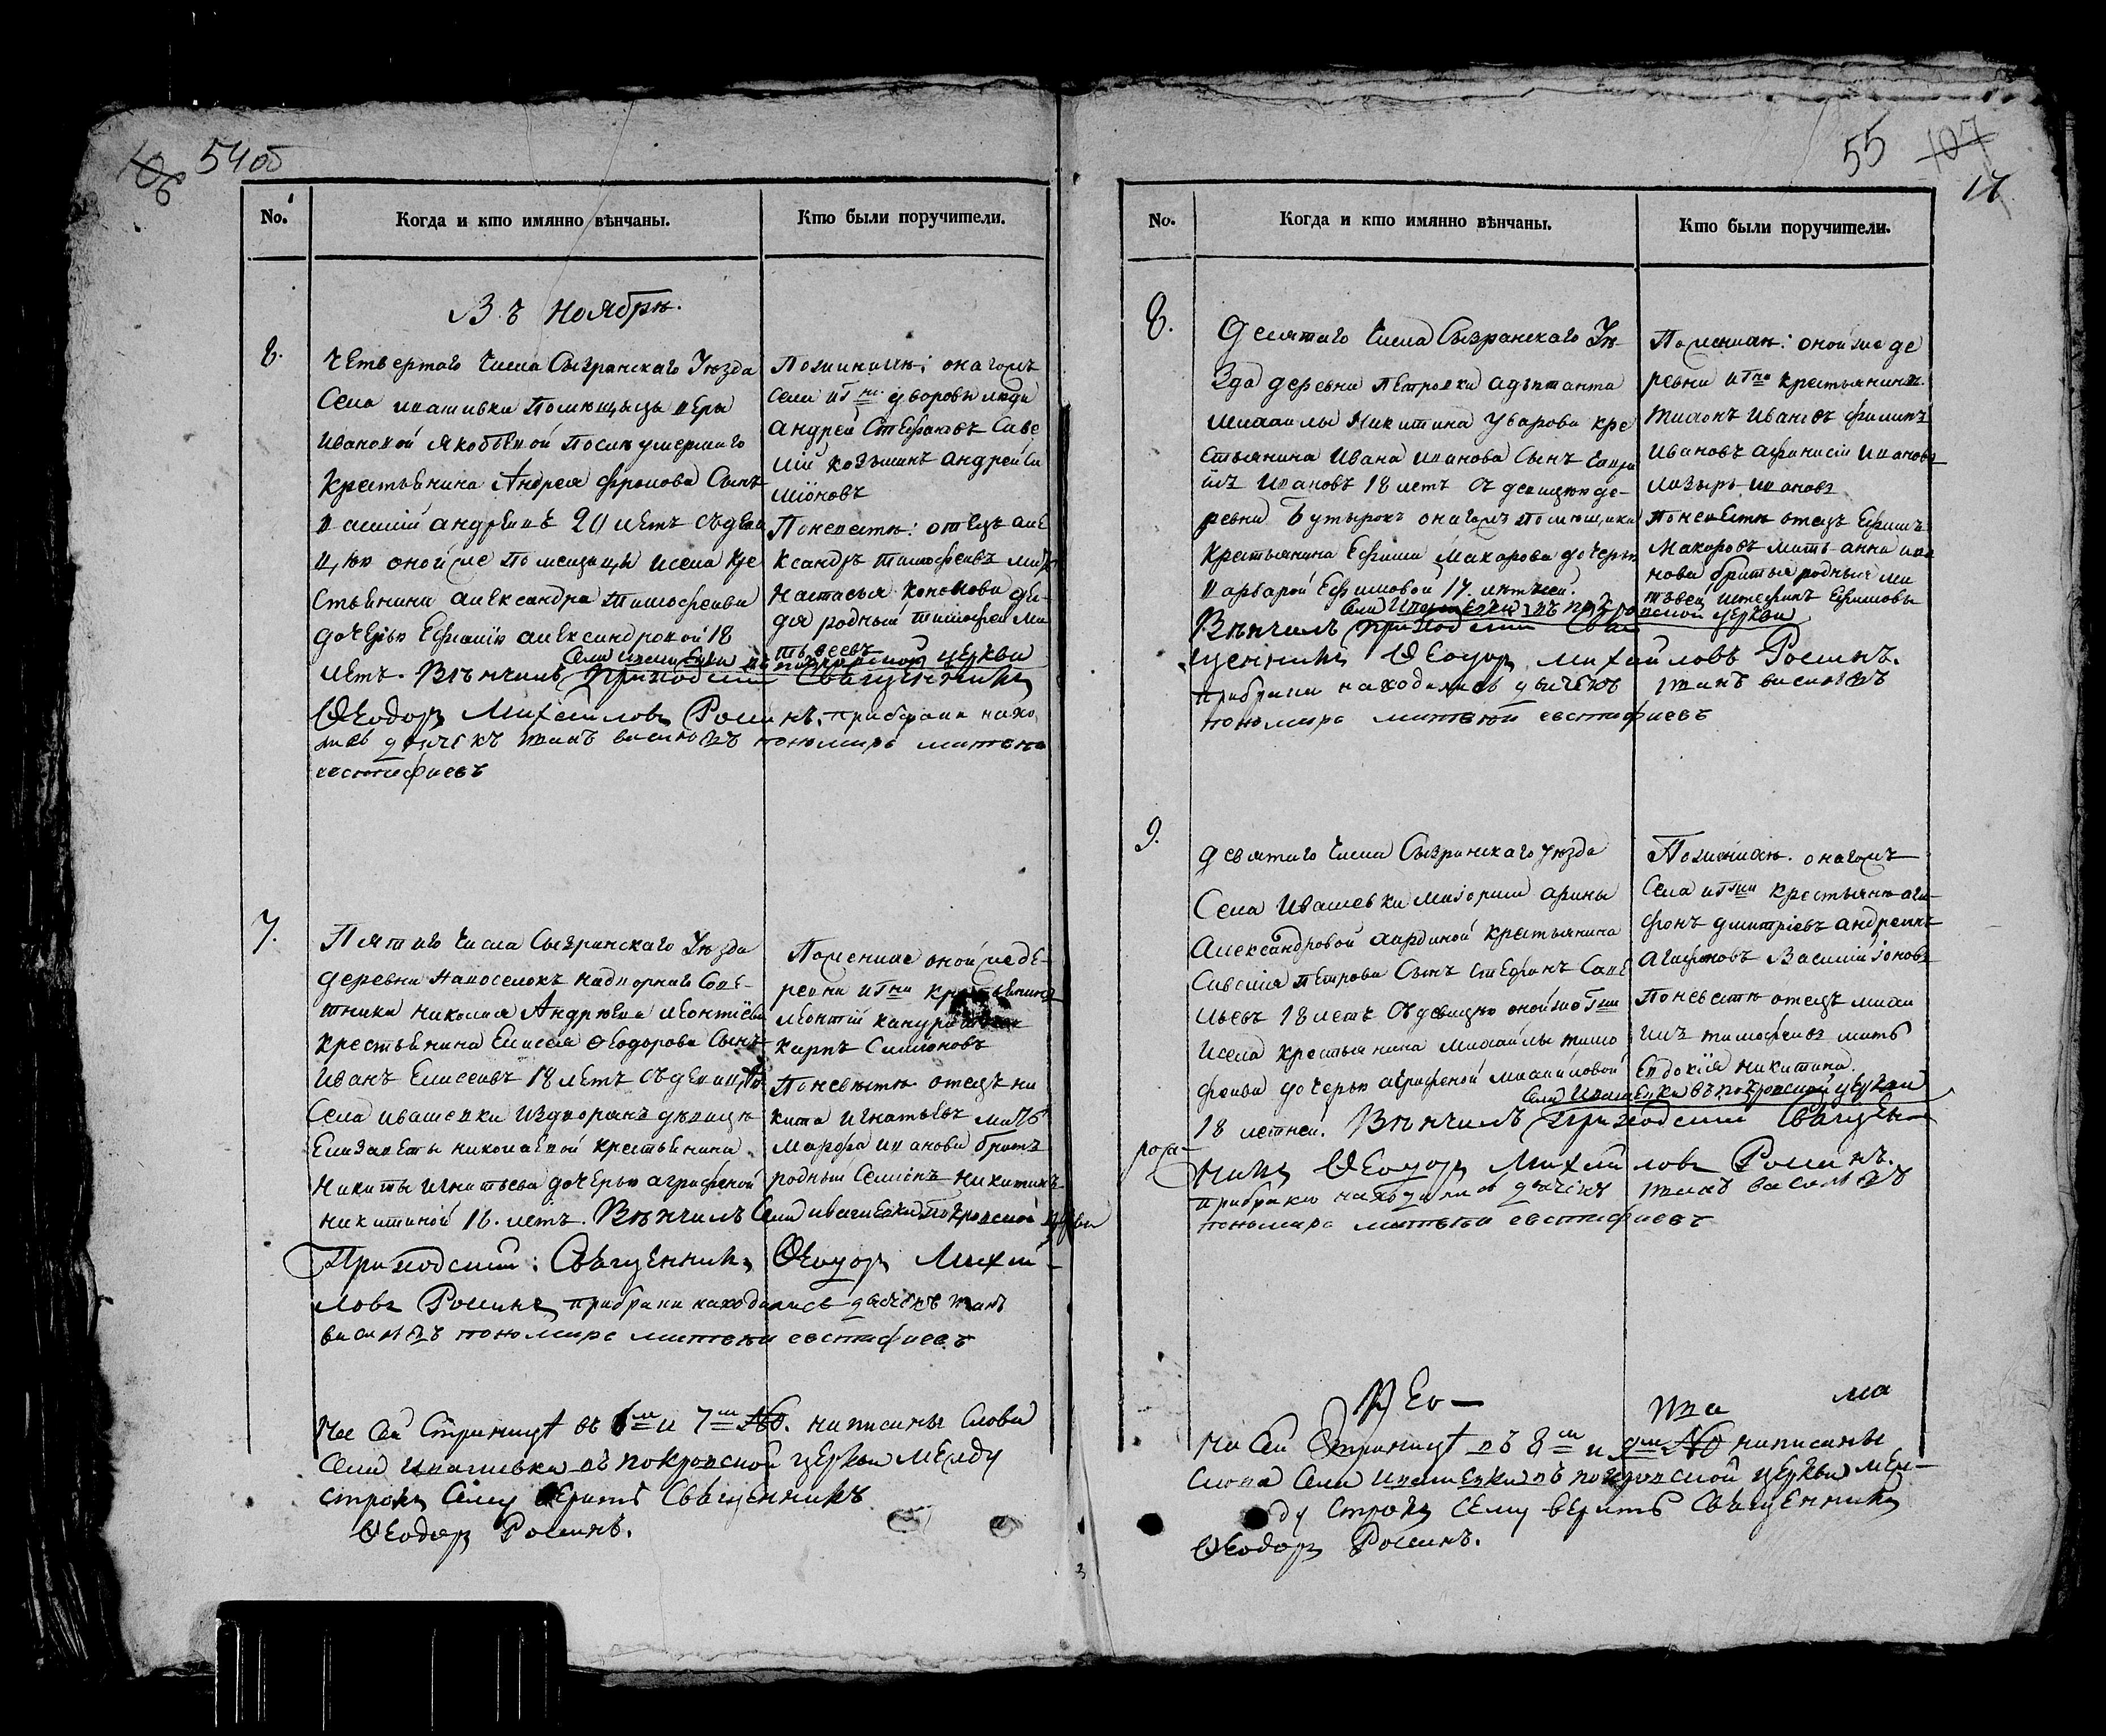 106 54об
No. Когда и кто имянно вѣнчаны. Кто были поручители.
Въ Ноябрѣ.
6.
Четвертаго Числа Сызранскаго Уѣзда
Села ивашивки Помѣщицы вѣры
Ивановой Якобывой После умершаго
Крестьянина Андрея фролова Сынъ
василій андреевъ 20 летъ съ деви
цею оной же помещицы исела Кре
стьянина александра Тимофеива
дочерью Ефимію александровой 18
летъ. Вѣнчилъ Села ивашевки въ покровской церкви
Приходскій Священникъ
Ѳеодоръ Михаиловъ Росинъ. прибраки нахо
лись дьячекъ иванъ васильевъ пономарь матвеи
евстафиевъ
Пожинихѣ: онагожъ
села и Гжи дворовы люди
андрей Стефановъ Саве
лій Козминъ андрей Си
міоновъ
Поневестѣ: отецъ але
ксандръ тимофеевъ мать
Настасья Кононова дя-
дя родный тимофей ма
твеевъ
7.
Пятаго Числа Сызранскаго Уѣзда
деревни Напоселокъ надворнаго Сове-
тника николая Андреева леонтіева
крестьянина Елисея Ѳеодорова Сынъ
Иванъ Елисеевъ 18 летъ съ девицею
Села ивашевки издворянъ девицы
Елизаветы николаевой крестьянина
Никиты Игнатьева дочерью аграфеной
никитиной 16. летъ. Вѣнчилъ Села ивашевки Покровской церкви
Приходскій: Священникъ Ѳеодоръ Михаи-
ловъ Росинъ прибраки находились дьячекъ иванъ
васильевъ пономарь матвеи евстафиевъ
Пожинихе онойже де-
ревни и Гжи крестьянинъ
леонтій
карпъ Симіоновъ
Поневѣстѣ отецъ ни
кита игнатьевъ мать
марфа иванова братъ
родный Семіонъ никитинъ
На Сей Страницѣ въ 6м и 7м No. написаны Слова
Села ивашивки въ покровской церкви между
строкъ Сему верить Священникъ
Ѳеодоръ Росинъ.
55 107
17
No. Когда и кто имянно вѣнчаны. Кто были поручители.
8.
Десятаго Числа Сызранскаго Уѣ
зда деревни Петровки адъютанта
михаилы Никитина Уварова кре
стьянина Ивана иванова Сынъ
Ивановъ 18 летъ съ девицею де-
ревни Бутырокъ онагожъ помещика
крестьянина Ефима Макарова дочерью
варварой Ефимовой 17. летней.
Села Ивашевки въ покровской церкви
Вѣнчилъ Приходскій Свя
щенникъ Ѳеодоръ михаиловъ Росинъ.
прибраки находились дьячекъ иванъ васильевъ
пономарь матвеи евстафиевъ
Пожинихѣ: онойже де
ревни и Гна крестьянинъ
Ивановъ филипъ
Ивановъ афанасій ивановъ
лазырь ивановъ
Поневестѣ отецъ Ефимъ
Макаровъ мать анна ива
нова братья родныя ма
твей истефанъ Ефимовы
9.
девятаго Числа Сызранскаго уѣзда
Села Ивашевки маіорши арины
Александровой хардиной крестьянина
Савелія петрова Сынъ стефанъ Саве
льевъ 18 летъ съ девицею онойже Гжи
исела крестьянина михаилы тимо
феива дочерью аграфеной михаиловой
18 летней. Села Ивашевки въ покровской церкви
Вѣнчилъ Приходскій Священ-
никъ Ѳеодоръ Михаиловъ Росинъ.
прибраки находились дьячекъ иванъ васильевъ
пономарь матвеи евстафиевъ
Пожинихѣ. онагожъ
Села и Гжи крестьянѣ ага-
фонъ дмитріевъ андреянъ
Агафоновъ Василій Іоновъ
Поневестѣ отецъ михаи
илъ тимофеивъ мать
Евдокія никитина.
На Сей Страницѣ въ 8м и 9м No написаны
слова Села ивашевки въ покровской церкви меж-
ду строкъ Сему верить Священникъ
Ѳеодоръ Росинъ.